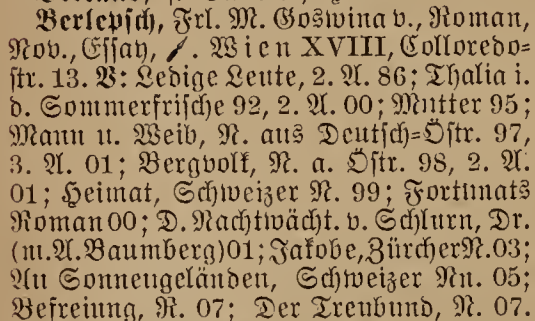 Berlepsch, Frl. M. Goswina v., Roman,
Nov., Essay, Wien XVIII, Colloredo=
str. 13. V: Ledige Leute, 2. A. 86; Thalia i.
d. Sommerfrische 92, 2. A. 00; Mutter 95;
Mann u. Weib, N. aus Deutsch=Östr. 97,
3. A. 01; Bergvolk, N. a. Östr. 98, 2. A.
01; Heimat, Schweizer N. 99; Fortunats
Roman 00; D. Nachtwächt. v. Schlurn, Dr.
(m. A. Baumberg) 01; Jakobe, Zürcher N. 03;
An Sonnengeländen, Schweizer Nn. 05;
Befreiung, R. 07; Der Treubund, N. 07.